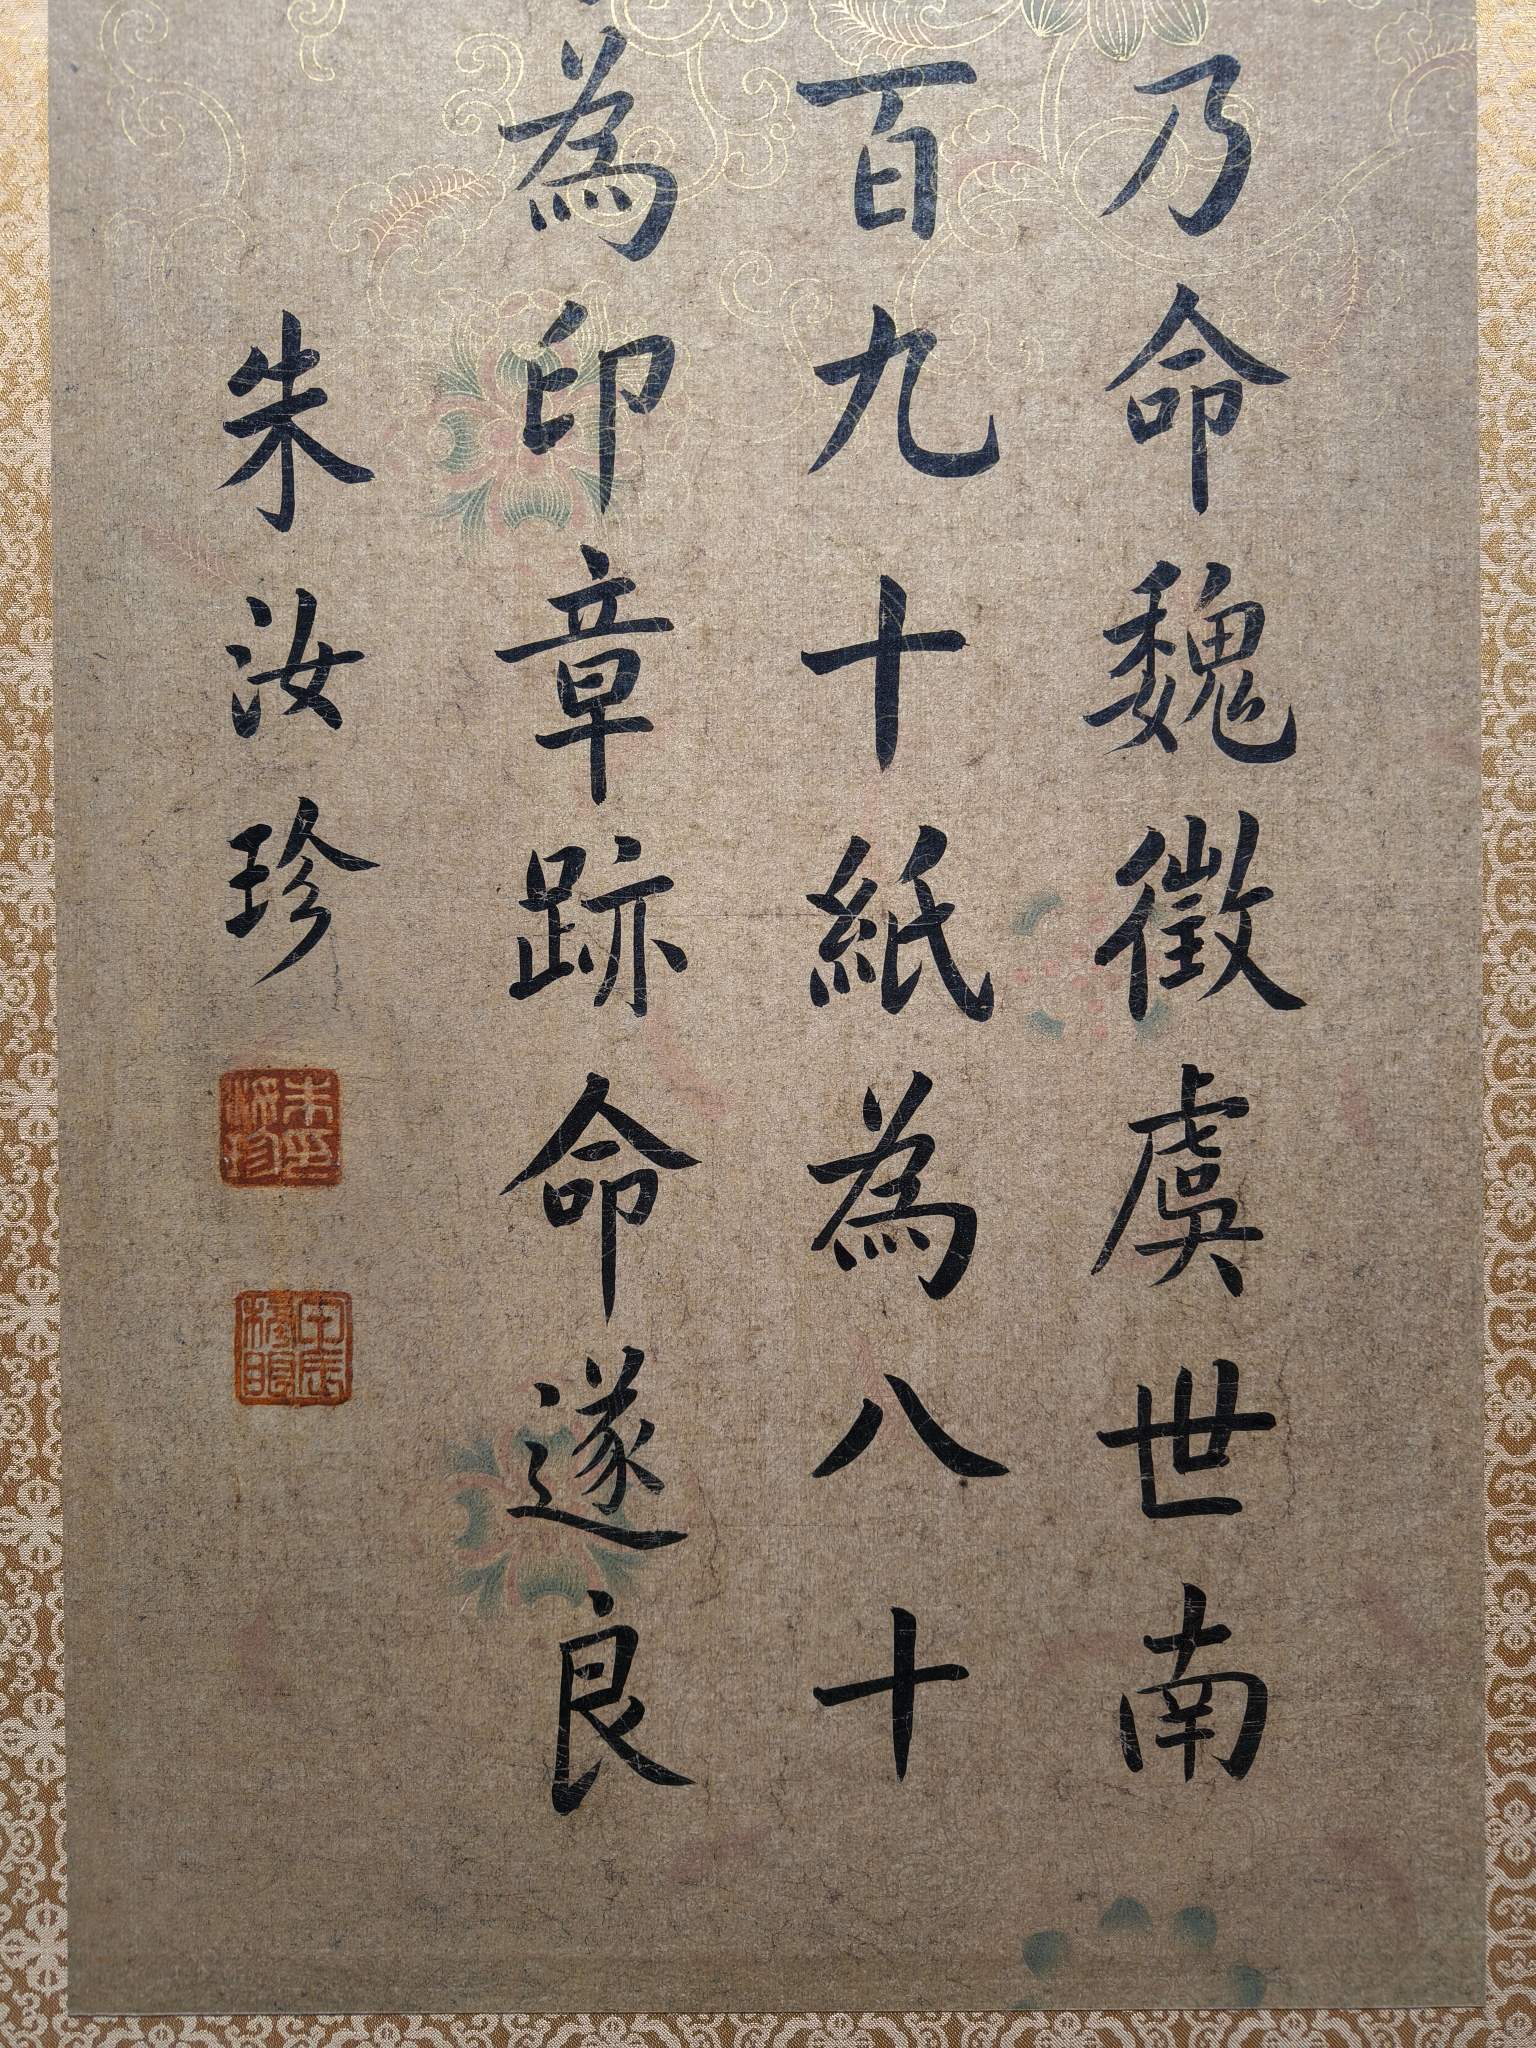 乃命魏徵虞世南
百九十紙為八十
為印章跡命遂良
朱汝珍
朱汝珍印
甲辰榜眼